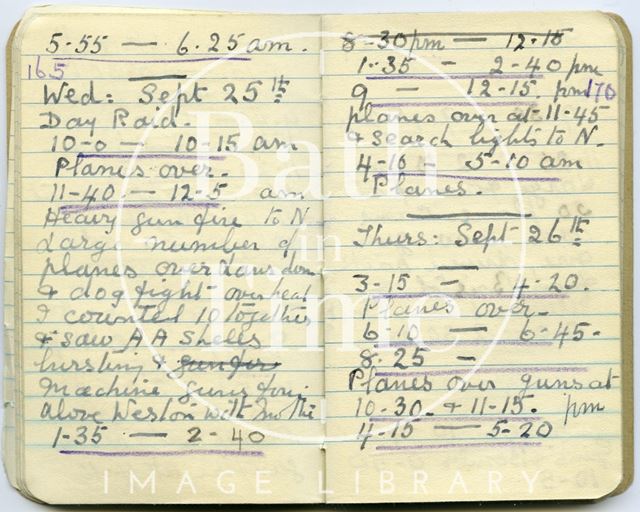 5-55 — 6.25 am.
165
Wed: Sept 25th
Day Raid.
10-0 — 10-15 am
Planes over.
11-40 — 12-5 am
Heavy gun fire to N.
Large number of
planes over Taus down
& dog fight over head
I counted 10 together
& saw AA Shells
bursting & gun fir
Machine guns
Above Weston with Mothe
1-35 — 2-40
8-30pm — 12.15
1.-35 — 2-40 pm
9 — 12-15. pm 170
planes over at 11-45
& Search lights to N.
4-10 - 5-10 am
Planes.
Thurs: Sept 26th
3-15 — 4-20.
Planes over.
6-10 — 6-45.
8.25 —
Planes over guns at
10-30. & 11-15. pm
4-15 — 5-20
Bath
in
Time
IMAGE LIBRARY